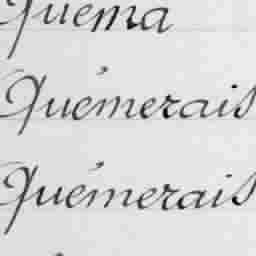 Quéma
Quémerais
Quémerais